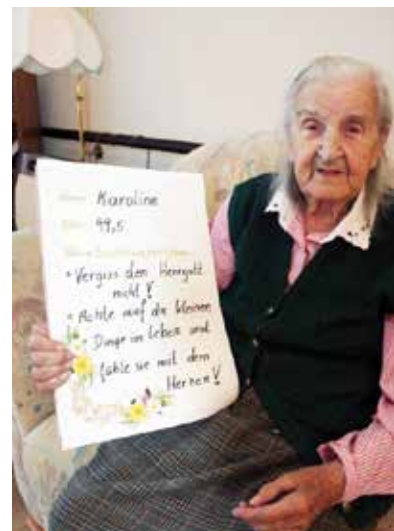 Karoline
99,5
• Vergiss den Herrgott
nicht!
• Achte auf die kleinen
• Dinge im Leben und
fühle sie mit dem
Herzen!